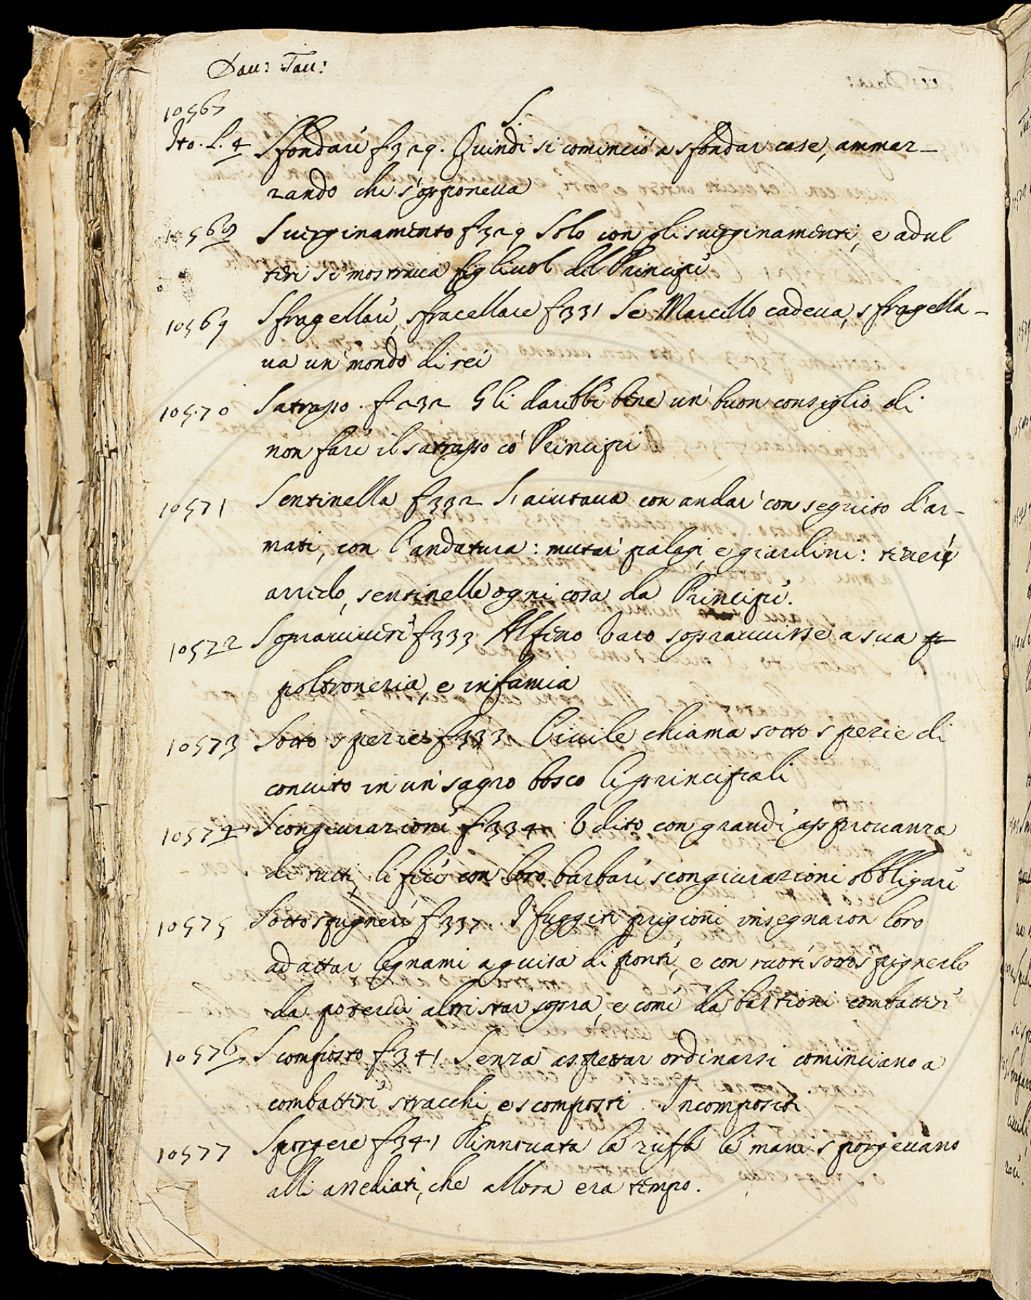 Dau: Tau:
S.
10567
Sto. L. 4 Sfondare f 329. Quindi si cominciò a sfondar case, ammaz-
zando chi s'opponeua
10568 Suerginamento f 329 Solo con gli suerginamenti, e adul
terî si mostraua figliuol del Principe
10569 Sfragellare, sfracellare f 331 Se Marcello cadeua, sfragella-
ua un mondo di rei
10570 Satrapo. f 232 Gli darebbe bene un buon consiglio di
non fare il satrapo có Principi
10571 Sentinella f 332 S'aiutaua con andar con seguito d'ar-
mati, con l'andatura: mutar palagi, e giardini: tenere
arredo, sentinelle ogni cosa da Principe.
10572 Soprauiuere f 333 Alfino Varo soprauuisse a sua
poltroneria, e infamia
10573 Sotto spezie f 333. Ciuile chiama sotto spezie di
conuito in un sagro bosco li principali
10574 Scongiurazione f 334. Udito con grande approuanza
di tutti, li fece con loro barbare scongiurazioni obbligare
10575 Sottospignere f 337. I fuggiti prigioni insegnaron loro
adattar legnami a guisa di ponte, e con ruote sottospignerlo
da poterui altri star sopra, e come da bastioni combattere
10576 Scomposto f 341 Senza aspettar ordinarsi cominciano a
combattere stracchi, e scomposti. Incompositi
10577 Sporgere f 341 Rinnouata la zuffa le mani sporgeuano
alli assediati, che allora era tempo.